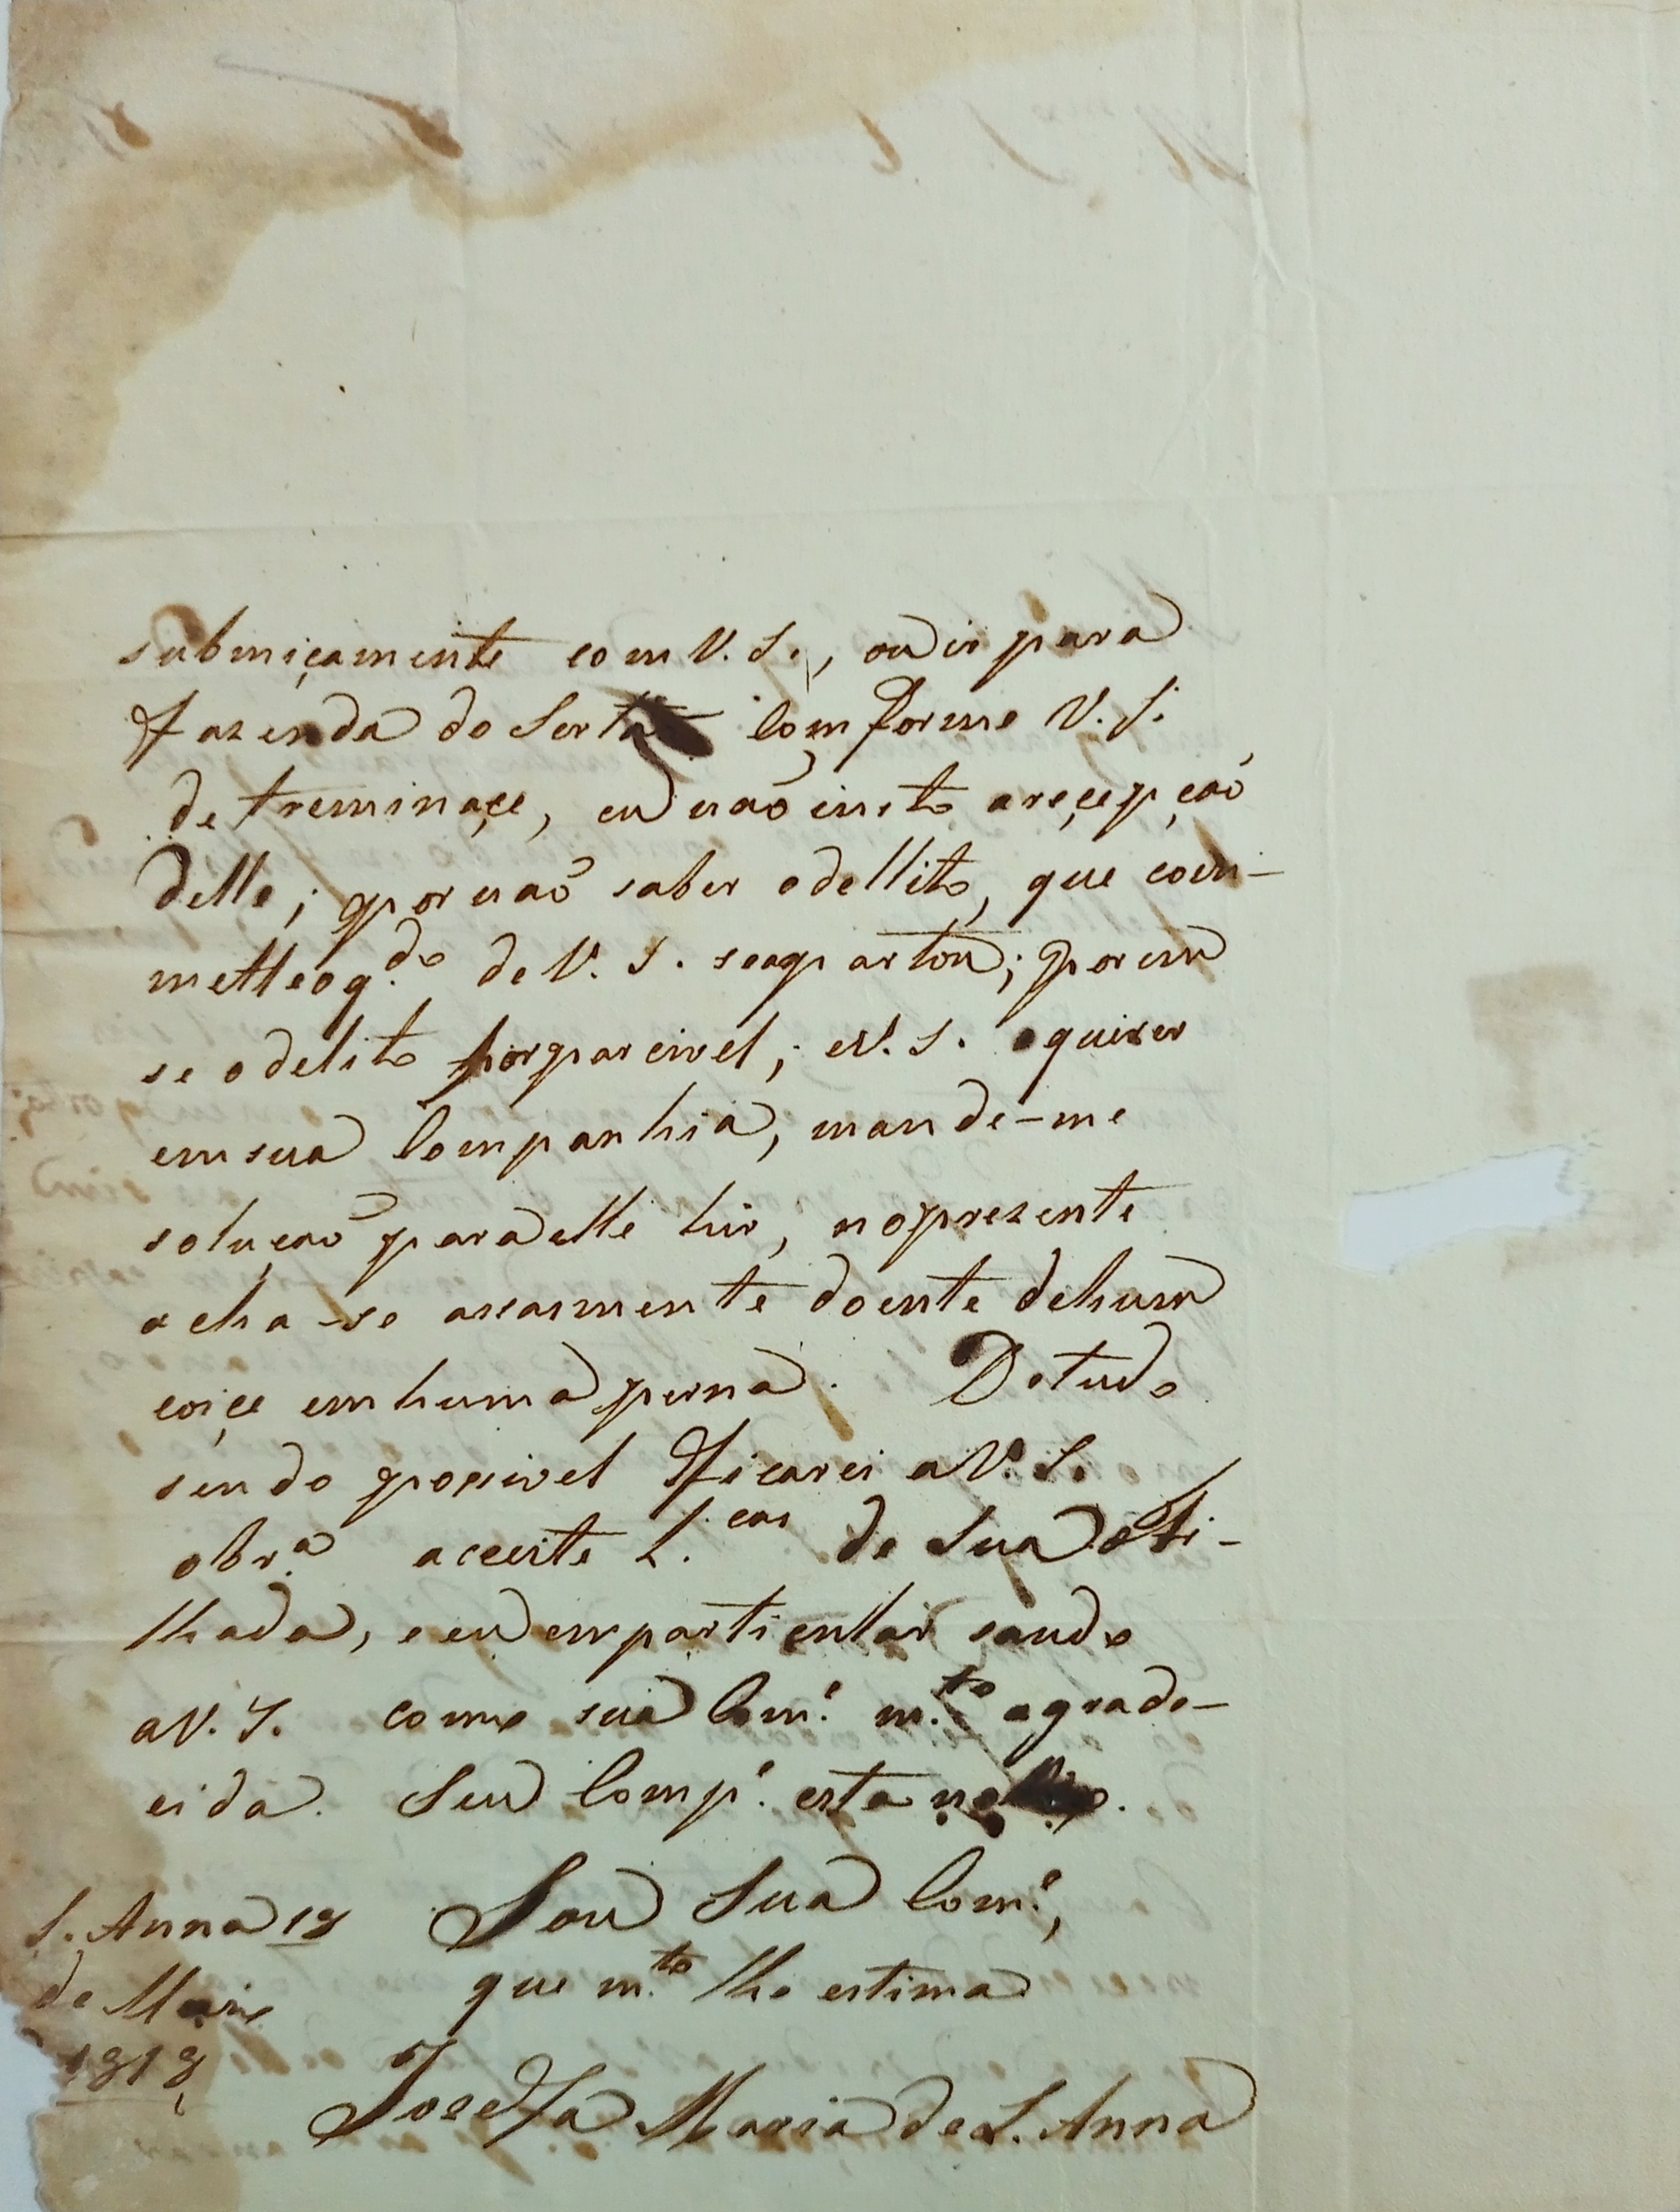 submiçamente com V. S., ou ir para
Fazenda do Sertaõ Comforme V. S.
detreminaçe, eu naõ insto areçepçaõ
delle; por naõ saber odellito, que com-
metteo q.do de V. S. seapartou; porem
se odelito for parcivel, e V. S. o quizer
em sua Companhia, mande-me
soluçaõ para elle hir, nopresente
acha-se assasmente doente dehum
coiçe em huma perna. Detudo
sendo possivel Ficarei a V. S.
obr.a aceeite L.cas de Sua Afi-
lhada, e eu emparticullar saudo
a V. S. como sua Com.e m.to agrade-
cida. Seu Comp.e esta no
S. Anna 18 Sou Sua Com.e,
de Maio que m.to lhe estima
1818 Josefa Maria de S. Anna